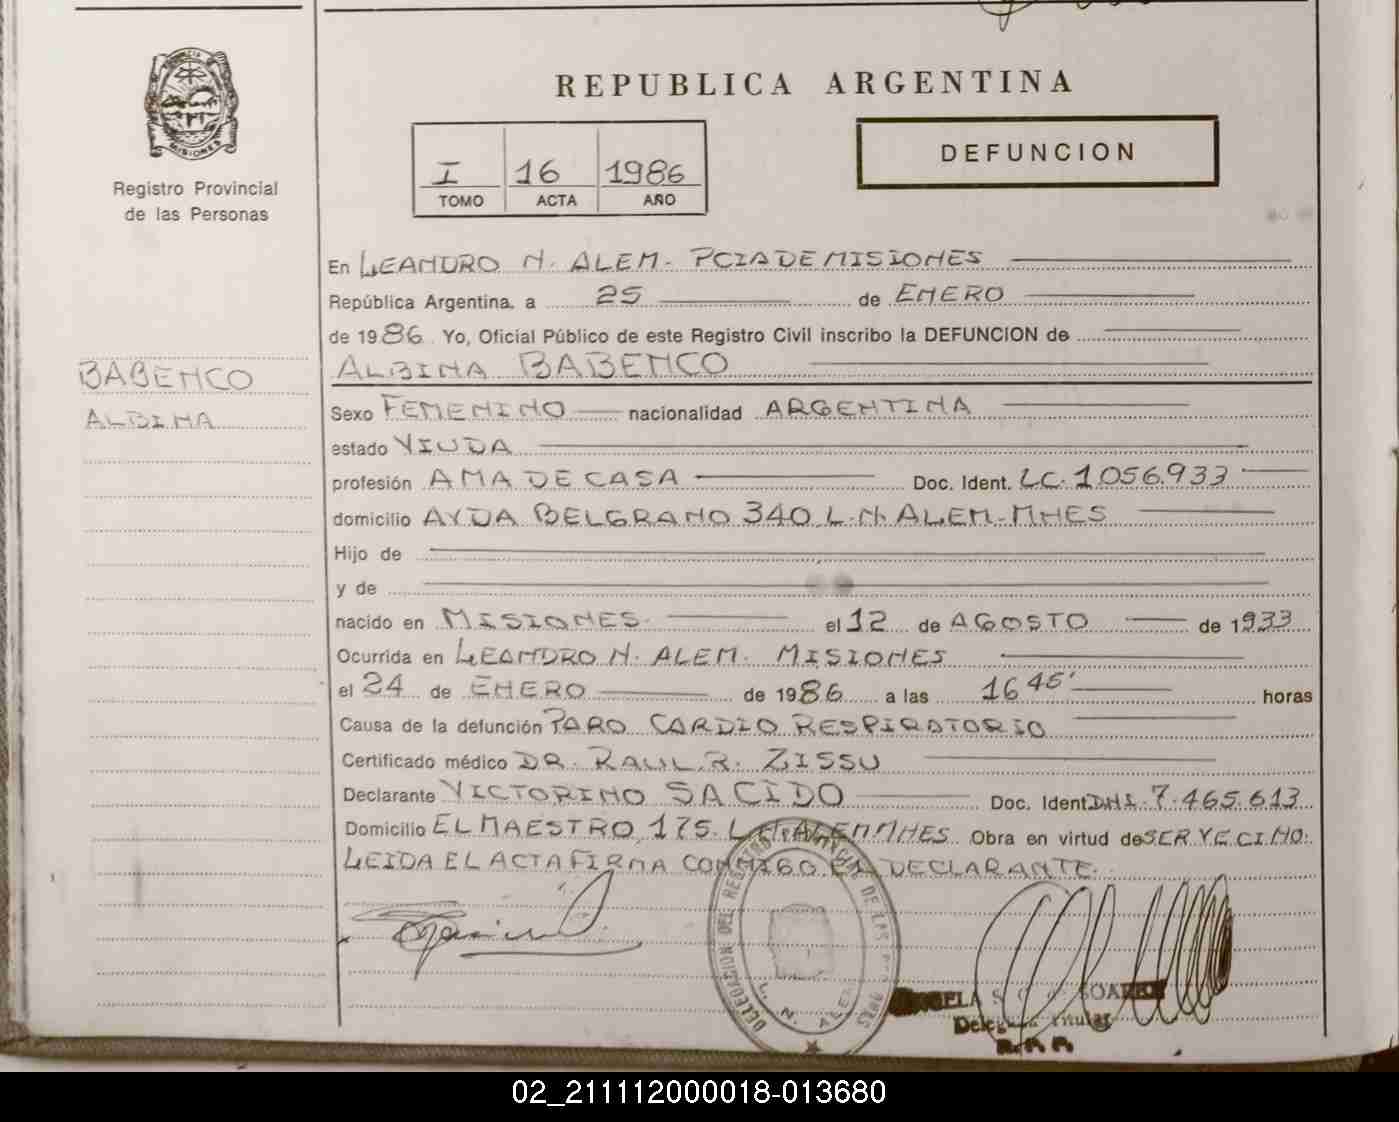 PROVINCIA DE
MISIONES
Registro Provincial
de las Personas
REPUBLICA ARGENTINA
I 16 1986
TOMO ACTA AÑO
DEFUNCION
En LEANDRO N. ALEM. PCIA DE MISIONES
República Argentina, a 25 de ENERO
de 1986 Yo, Oficial Público de este Registro Civil inscribo la DEFUNCION de
ALBINA BABENCO
BABENCO
ALBINA
Sexo FEMENINO nacionalidad ARGENTINA
estado VIUDA
profesión AMA DE CASA Doc. Ident. LC. 1.056.933
domicilio AVDA BELGRANO 340 L.N. ALEM-MNES
Hijo de
y de
nacido en MISIONES. el 12 de AGOSTO de 1933
Ocurrida en LEANDRO N. ALEM. MISIONES
el 24 de ENERO de 1986 a las 16 45' horas
Causa de la defunción PARO CARDIO RESPIRATORIO
Certificado médico DR. RAUL R. ZISSU
Declarante VICTORINO SACIDO Doc. Ident DNI. 7.465.613
Domicilio EL MAESTRO 175. L.N. ALEM MNES. Obra en virtud de SER VECINO.
LEIDA EL ACTA FIRMA CONMIGO EL DECLARANTE.
DELEGACION DEL REGISTRO PROVINCIAL DE LAS
L. N. ALEM
SOARES
Titular
R.P.P.
02_211112000018-013680